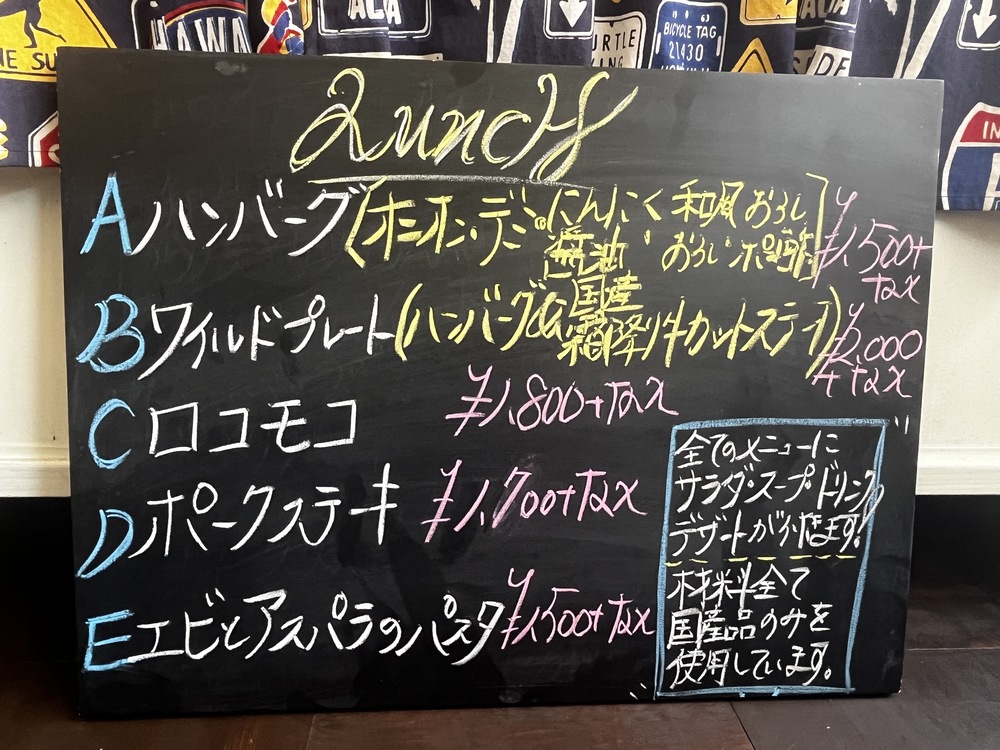 HAWA
ACA
TURTLE
BICYCLE TAG
21430
DE
IN
Lunch
A ハンバーグ(オニオン・デミ・にんにく醤油・和風おろし・おろしポン酢) ¥1,500+tax
B ワイルドプレート(ハンバーグ&国産霜降り牛カットステーキ) ¥2,000+tax
C ロコモコ ¥1,800+tax
D ポークステーキ ¥1,700+tax
E エビとアスパラのパスタ ¥1,500+tax
全てのメニューに
サラダ・スープ・ドリンク
デザートが付きます。
材料全て
国産品のみを
使用しています。